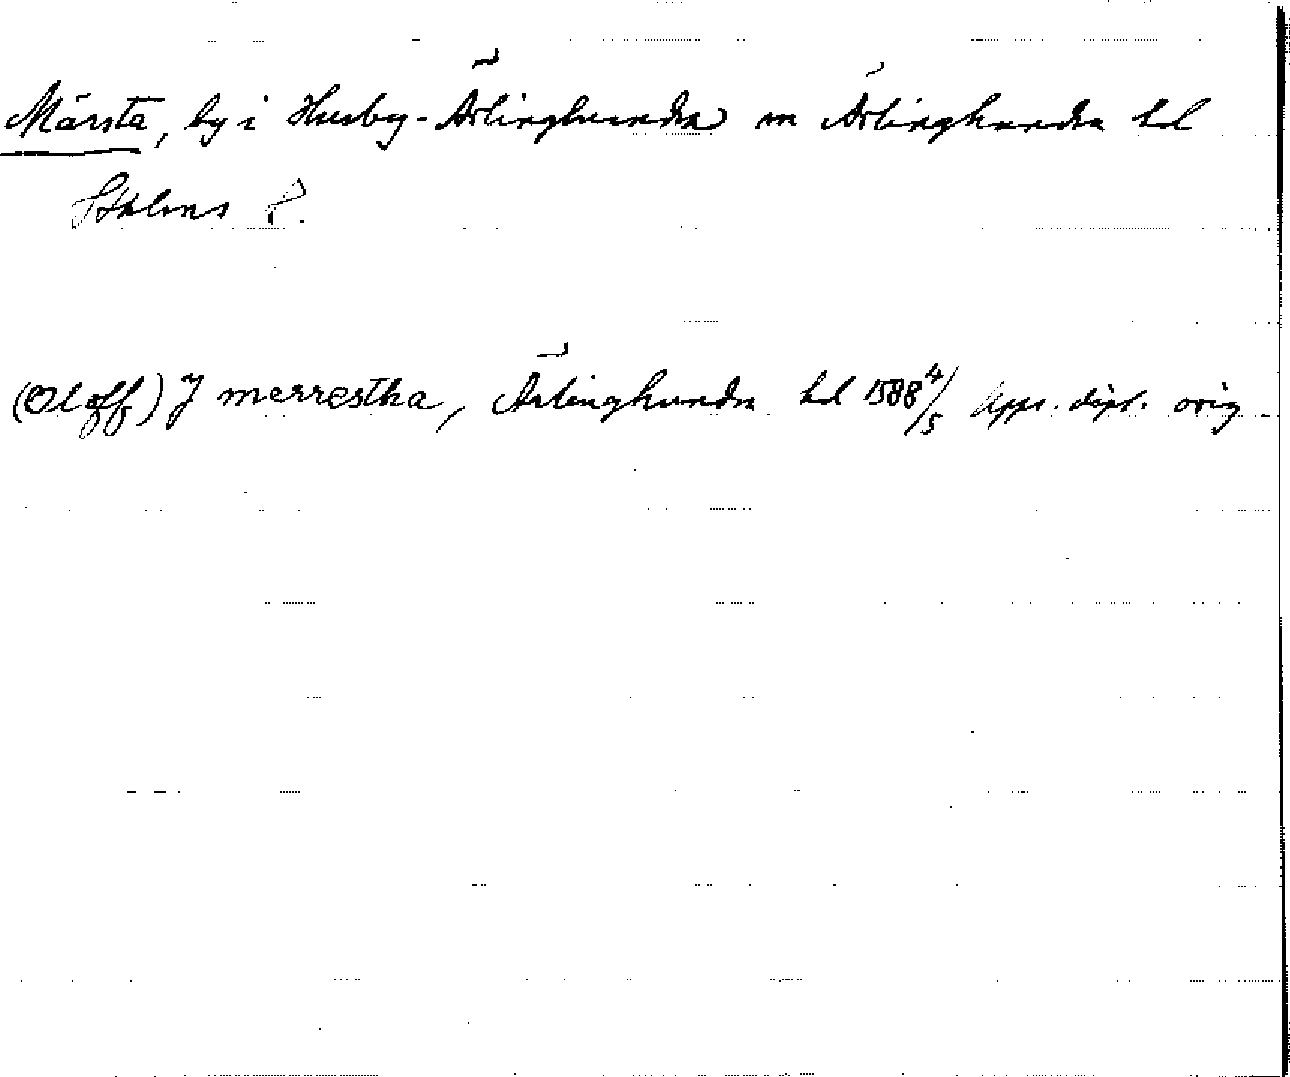 Märsta, by i Husby-Ärlinghundra sn Ärlinghundra hd
Sthlms l.
(Oloff) J merrestha, Ärlinghundra hd 1588 4/5 Upps. dipl. orig